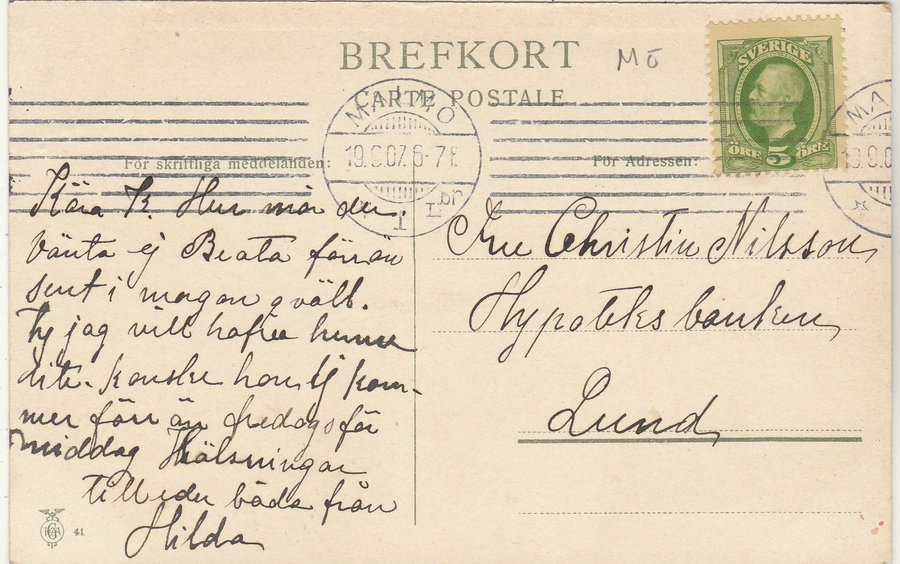 BREFKORT
MÖ
CARTE POSTALE
SVERIGE
ÖRE 5 ÖRE
MALMÖ
19.9.07. 6-7 E.
1 T ur.
För skriftliga meddelanden:
För Adressen:
Kära K. Hur mår du.
Vänta ej Beata förrän
sent i morgon qväll.
Ty jag vill hafva henne
dit. Kanske hon ej kom-
mer förr än fredags för
middag Hälsningar
till eder båda från
Hilda
Fru Christin Nilsson
Hypoteksbanken
Lund
41